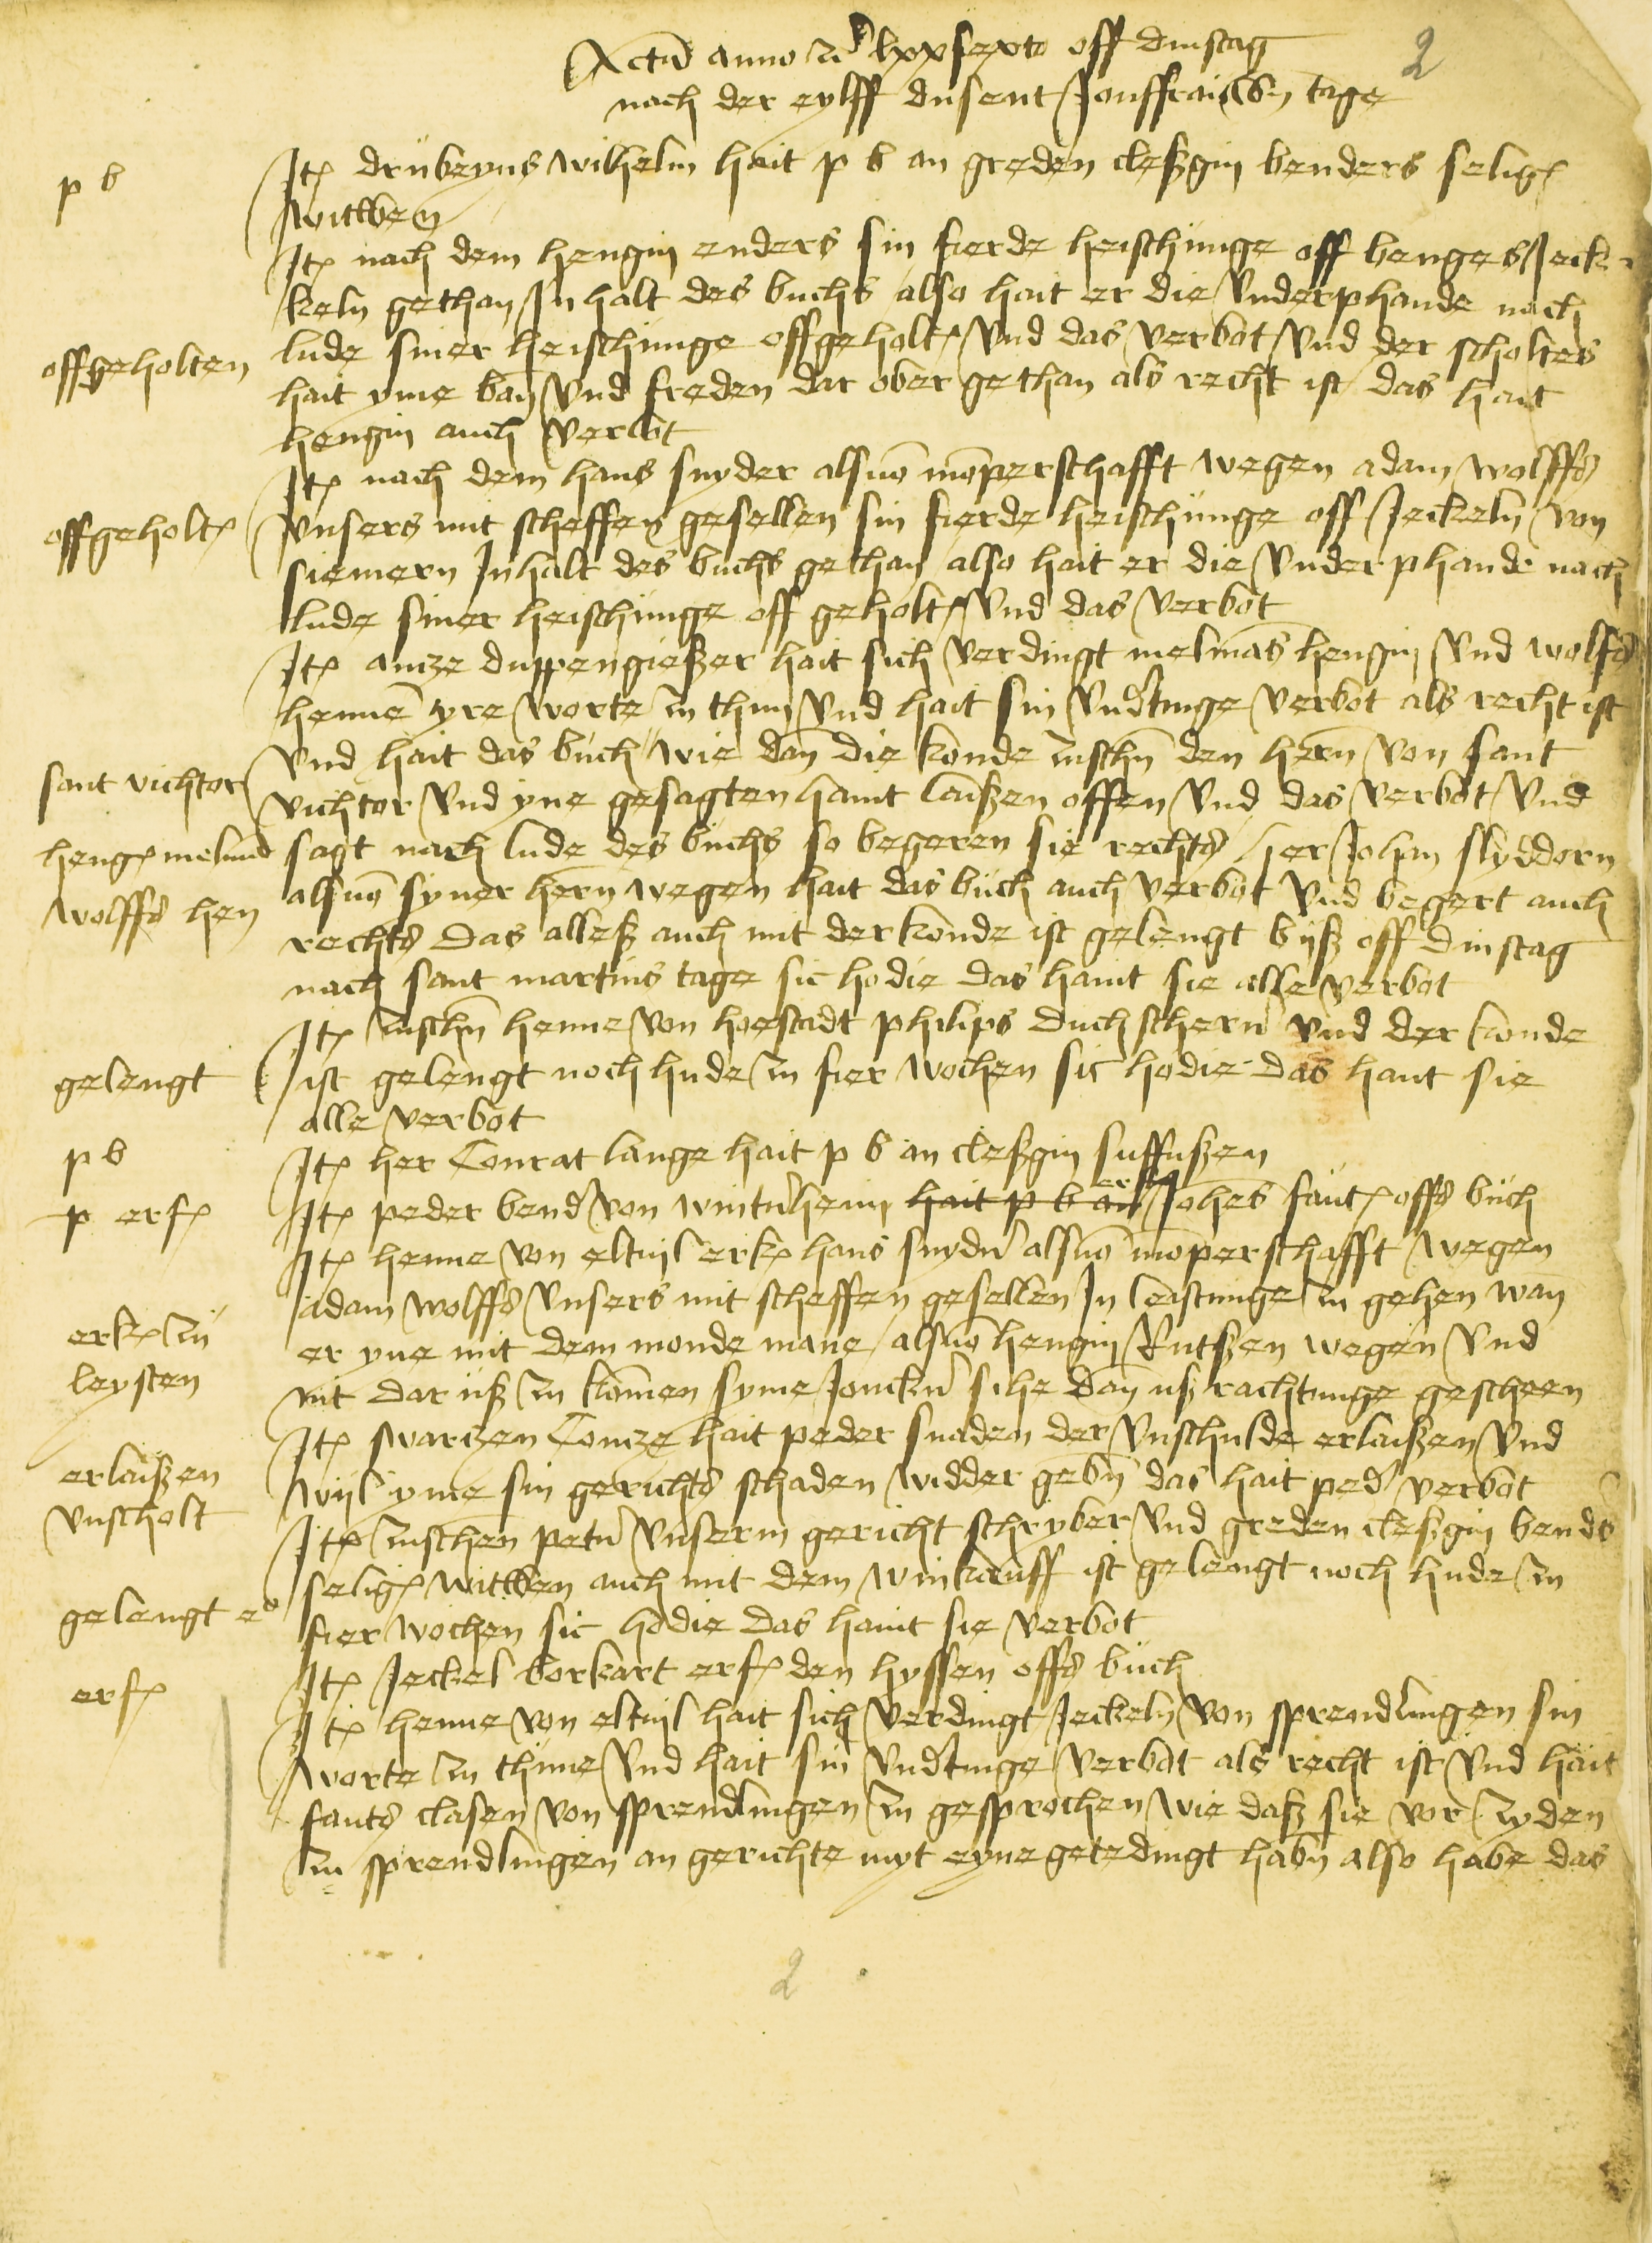 Actu anno lxxsexto off dinstag
nach der eylff dusent Jonffrauwen tage
2
p b
Ite drubeyns wilhelm hait p b an greden cleßgin benders selige
witwen
Ite nach dem hengin enders sin fierde heischunge off henges Jeck
keln gethan Inhalt des buchs also hait er die underphande nach
offgeholten
lude siner heischunge offgeholt und das verbot und der scholtes
hait yme ban und freden dar ober gethan als recht ist das hait
hengin auch verbot
Ite nach dem hans snyder als von monperschafft wegen adam wolffs
offgeholt
unsers mit scheffen gesellen sin fierde heischunge off Jeckeln von
siemern Inhalt des buchs gethan also hait er die underphande nach
lude siner heischunge off geholt und das verbot
Ite antze duppengießer hait sich verdingt melmans hengin und wolffs
henne yre worte zu thun und hait sin underdinge verbot als recht ist
und hait das buch wie dan die konde zuschen den hern von sant
sant victor
victor und yne gesagten haint laißen offen und das verbot und
heng melman
sagt nach lude des buchs so begeren sie rechts her Johan slyddorn
wolffs hen
als von syner hern wegen hait das buch auch verbot und begert auch
rechts Das alleß auch mit der konde ist gelengt biß off dinstag
nach sant martins tage sic hodie das haint sie alle verbot
Ite zuschen henne von hoestadt philips duchscherer und der konde
gelengt
ist gelengt noch hude zu fier wochen sic hodie das haint sie
alle verbot
p b
Ite her Conrat lange hait p b an cleßgin suffußen
p erf
Ite peder bender von winterheim hait p b an erf Johes faut offs buch
Ite henne von eltvil erk hans snyder als von monperschafft wegen
adam wolffs unsers mit scheffen gesellen In leistunge zu gehen wan
erk zu
er yne mit dem monde mane als von hengin Rutßen wegen und
leysten
nit dar uß zu komen syme Joncker sihe dan ußrachtunge gescheen
Ite swarczen Contze hait peder snaden der unschulde erlaißen und
erlaißen
wyl yme sin gerichts schaden widder geben das hait peder verbot
unscholt
Ite zuschen peter unserm gericht schryber und greden cleßgin benders
selige witwen auch mit dem winkauff ist gelengt noch hude zu
gelengt
fier wochen sic hodie das haint sie verbot
erf
Ite Jeckel borkart erf den hyssen offs buch
Ite henne von eltvil hait sich verdingt Jeckeln von sprendlingen sin
worte zu thune und hait sin underdinge verbot als recht ist und hait
fauts clasen von sprendlingen zu gesprochen wie daß sie vor zyden
zu sprendlingen an gerichte myt eyne getedingt haben also habe das
2